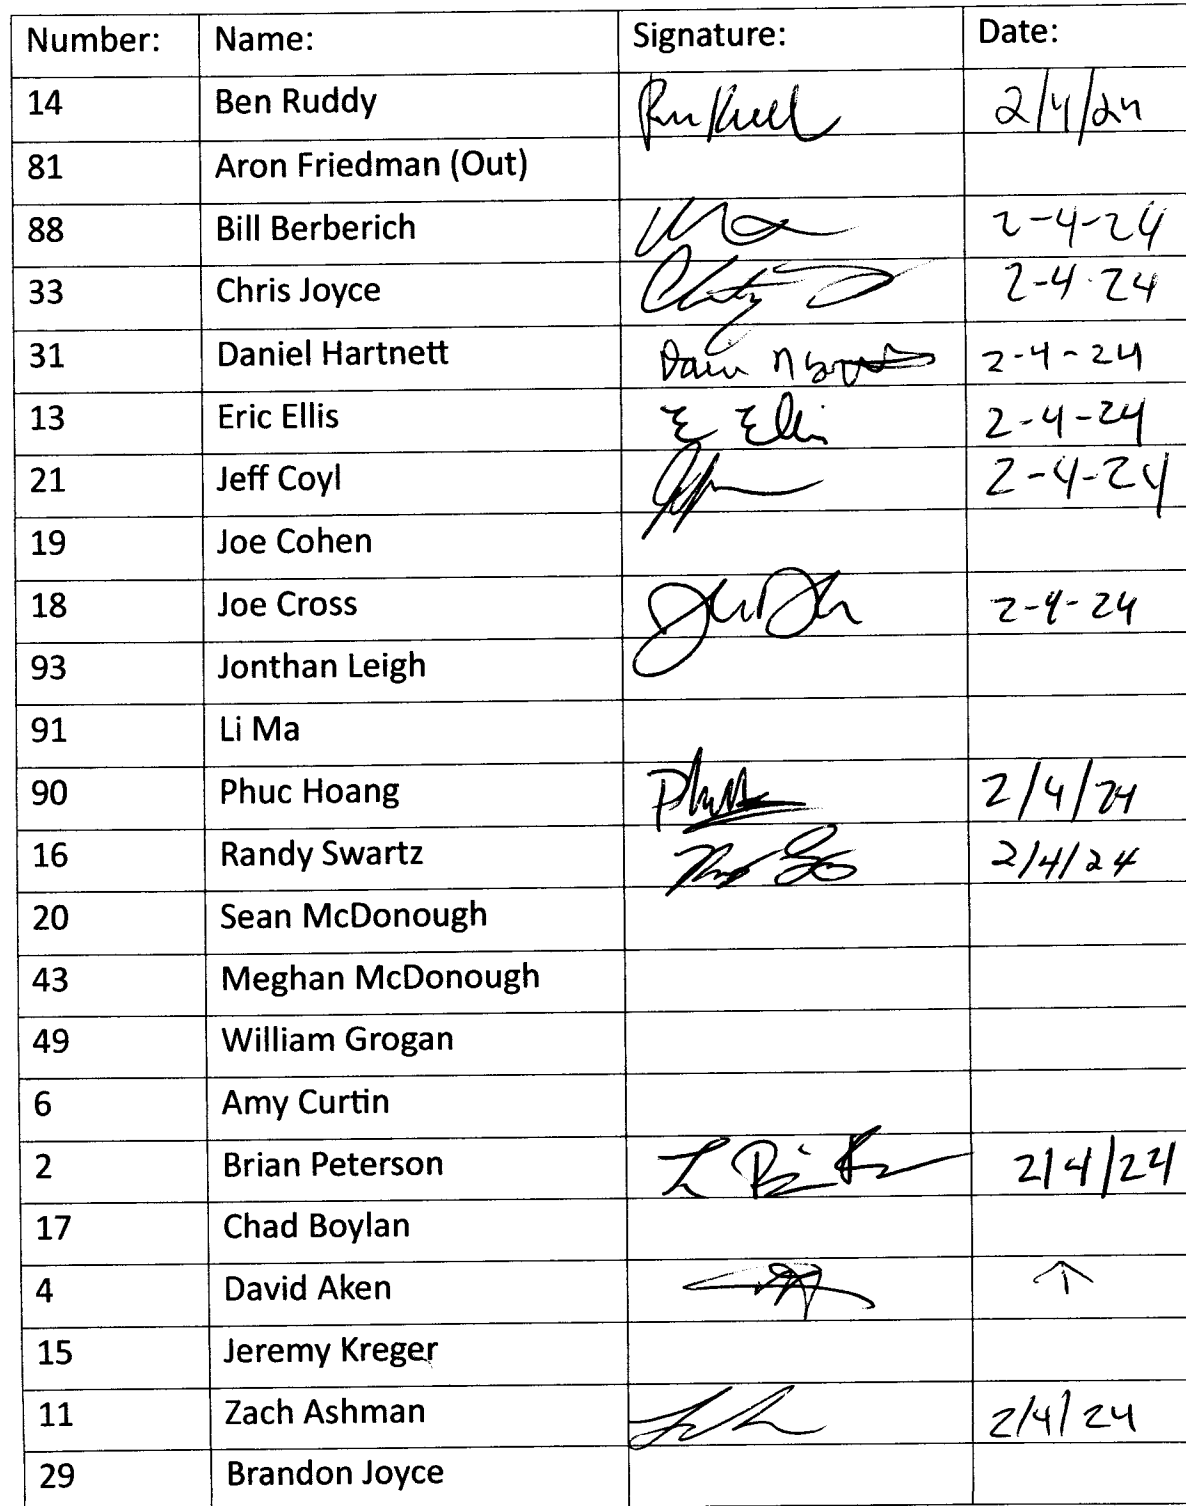 Number: Name: Signature: Date:
14 Ben Ruddy 2/4/24
81 Aron Friedman (Out)
88 Bill Berberich 2-4-24
33 Chris Joyce 2-4-24
31 Daniel Hartnett 2-4-24
13 Eric Ellis E Ellis 2-4-24
21 Jeff Coyl 2-4-24
19 Joe Cohen
18 Joe Cross 2-4-24
93 Jonthan Leigh
91 Li Ma
90 Phuc Hoang 2/4/24
16 Randy Swartz 2/4/24
20 Sean McDonough
43 Meghan McDonough
49 William Grogan
6 Amy Curtin
2 Brian Peterson 2/4/24
17 Chad Boylan
4 David Aken ↑
15 Jeremy Kreger
11 Zach Ashman 2/4/24
29 Brandon Joyce